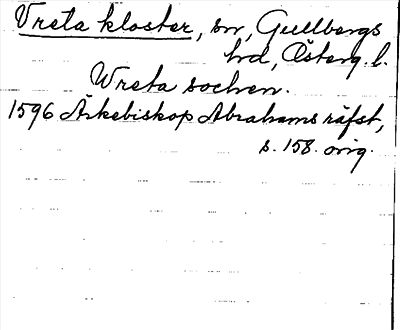 Vreta kloster, sn, Gullbergs
hrd, Österg. l.
Wreta sochen.
1596 Ärkebiskop Abrahams räfst,
s. 158. orig.